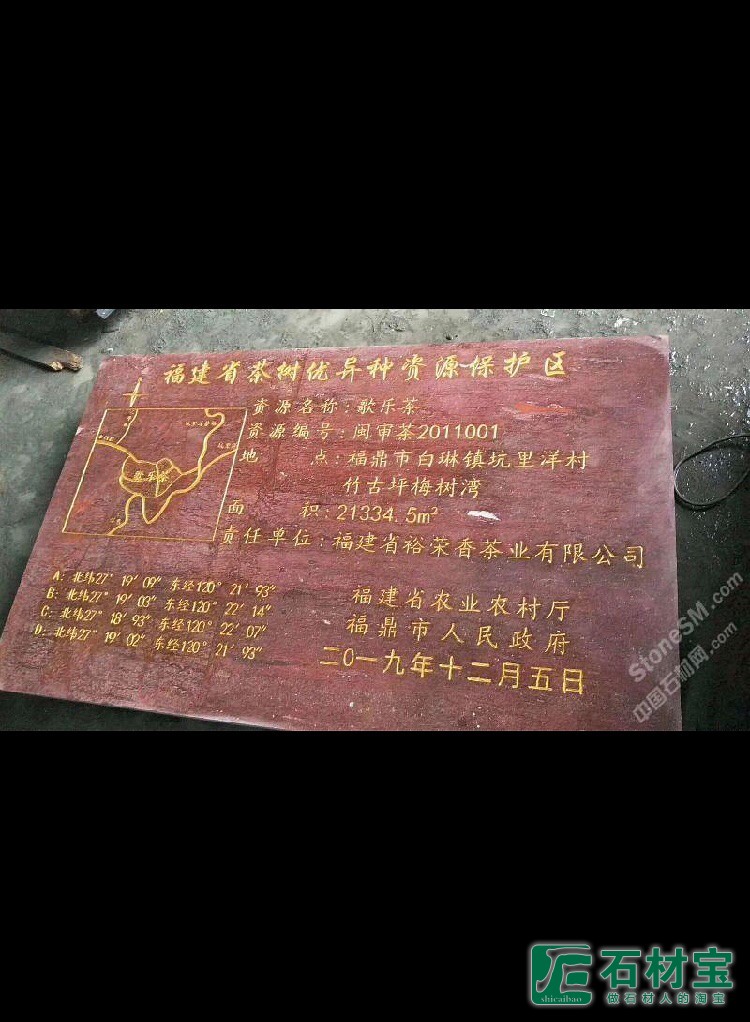 福建省茶树优异种资源保护区
资源名称:歌乐茶
资源编号:闽审茶2011001
地 点:福鼎市白琳镇坑里洋村
竹古坪梅树湾
面 积:21334.5m²
责任单位:福建省裕荣香茶业有限公司
歌乐茶
A:北纬27°19′09″东经120°21′93″
B:北纬27°19′03″东经120°22′14″
C:北纬27°18′93″东经120°22′07″
D:北纬27°19′02″东经120°21′93″
福建省农业农村厅
福鼎市人民政府
二0一九年十二月五日
StoneSM.com
中国石材网.com
石材宝
shicaibao
做石材人的淘宝